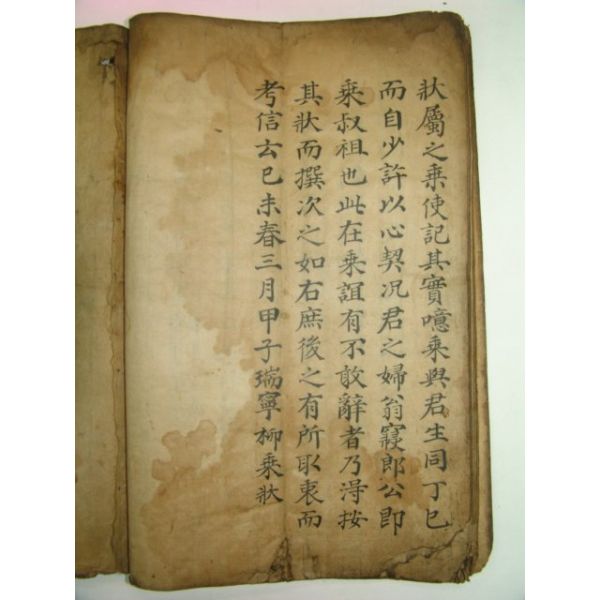 狀屬之乘使記其實噫乘與君生同丁巳
而自少許以心契況君之婦翁寢郎公即
乘叔祖也此在乘誼有不敢辭者乃淂按
其狀而撰次之如右庶後之有所取衷而
考信云己未春三月甲子瑞寧柳乘狀